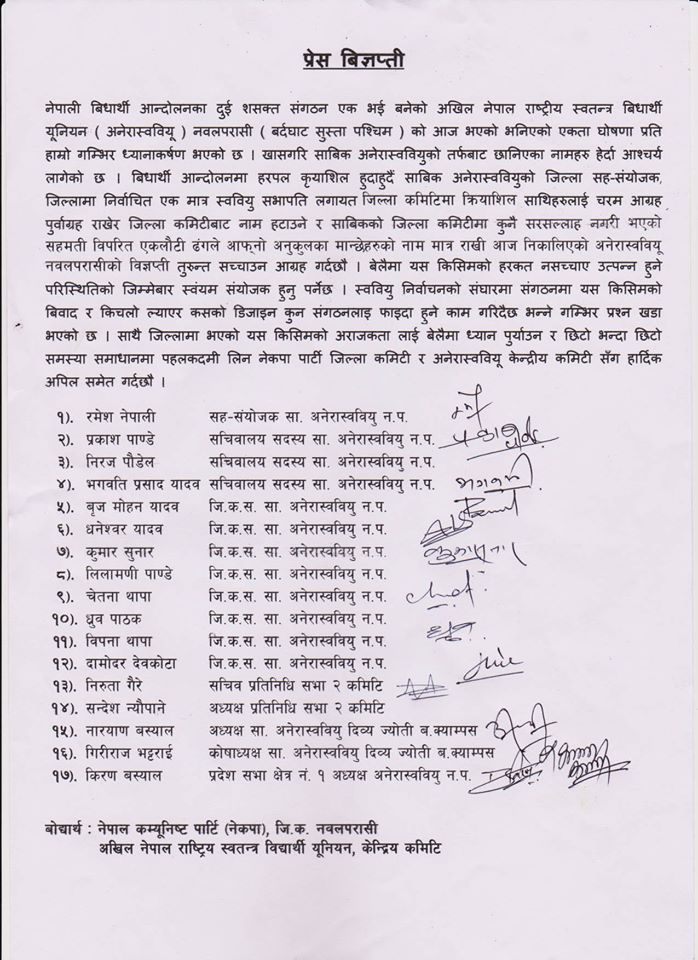 प्रेस बिज्ञप्ती
नेपाली बिधार्थी आन्दोलनका दुई शसक्त संगठन एक भई बनेको अखिल नेपाल राष्ट्रीय स्वतन्त्र बिधार्थी
यूनियन ( अनेरास्ववियू ) नवलपरासी ( बर्दघाट सुस्ता पश्चिम ) को आज भएको भनिएको एकता घोषणा प्रति
हाम्रो गम्भिर ध्यानाकर्षण भएको छ । खासगरि साबिक अनेरास्ववियुको तर्फबाट छानिएका नामहरु हेर्दा आश्चर्य
लागेको छ । बिधार्थी आन्दोलनमा हरपल कृयाशिल हुदाहुदैं साबिक अनेरास्ववियुको जिल्ला सह-संयोजक,
जिल्लामा निर्वाचित एक मात्र स्ववियु सभापति लगायत जिल्ला कमिटिमा क्रियाशिल साथिहरुलाई चरम आग्रह
पुर्वाग्रह राखेर जिल्ला कमिटीबाट नाम हटाउने र साबिकको जिल्ला कमिटीमा कुनै सरसल्लाह नगरी भएको
सहमती विपरित एकलौटी ढंगले आफ्नो अनुकुलका मान्छेहरुको नाम मात्र राखी आज निकालिएको अनेरास्ववियू
नवलपरासीको विज्ञप्ती तुरुन्त सच्चाउन आग्रह गर्दछौ । बेलैमा यस किसिमको हरकत नसच्चाए उत्पन्न हुने
परिस्थितिको जिम्मेबार स्वंयम संयोजक हुनु पर्नेछ । स्ववियु निर्वाचनको संघारमा संगठनमा यस किसिमको
बिवाद र किचलो ल्याएर कसको डिजाइन कुन संगठनलाइ फाइदा हुने काम गरिदैछ भन्ने गम्भिर प्रश्न खडा
भएको छ । साथै जिल्लामा भएको यस किसिमको अराजकता लाई बेलैमा ध्यान पुर्याउन र छिटो भन्दा छिटो
समस्या समाधानमा पहलकदमी लिन नेकपा पार्टी जिल्ला कमिटी र अनेरास्ववियू केन्द्रीय कमिटी सँग हार्दिक
अपिल समेत गर्दछौ ।
१). रमेश नेपाली सह-संयोजक सा. अनेरास्ववियु न.प.
२). प्रकाश पाण्डे सचिवालय सदस्य सा. अनेरास्ववियु न.प.
३). निरज पौडेल सचिवालय सदस्य सा. अनेरास्ववियु न.प.
४). भगवति प्रसाद यादव सचिवालय सदस्य सा. अनेरास्ववियु न.प.
५). बृज मोहन यादव जि.क.स. सा. अनेरास्ववियु न.प.
६). धनेश्वर यादव जि.क.स. सा. अनेरास्ववियु न.प.
७). कुमार सुनार जि.क.स. सा. अनेरास्ववियु न.प.
८). लिलामणी पाण्डे जि.क.स. सा. अनेरास्ववियु न.प.
९). चेतना थापा जि.क.स. सा. अनेरास्ववियु न.प.
१०). ध्रुव पाठक जि.क.स. सा. अनेरास्ववियु न.प.
११). विपना थापा जि.क.स. सा. अनेरास्ववियु न.प.
१२). दामोदर देवकोटा जि.क.स. सा. अनेरास्ववियु न.प.
१३). निरुता गैरे सचिव प्रतिनिधि सभा २ कमिटि
१४). सन्देश न्यौपाने अध्यक्ष प्रतिनिधि सभा २ कमिटि
१५). नारायण बस्याल अध्यक्ष सा. अनेरास्ववियु दिव्य ज्योती ब.क्याम्पस
१६). गिरीराज भट्टराई कोषाध्यक्ष सा. अनेरास्ववियु दिव्य ज्योती ब.क्याम्पस
१७). किरण बस्याल प्रदेश सभा क्षेत्र नं. १ अध्यक्ष अनेरास्ववियु न.प.
बोद्यार्थ : नेपाल कम्यूनिष्ट पार्टि (नेकपा), जि.क. नवलपरासी
अखिल नेपाल राष्ट्रिय स्वतन्त्र विद्यार्थी यूनियन, केन्द्रिय कमिटि